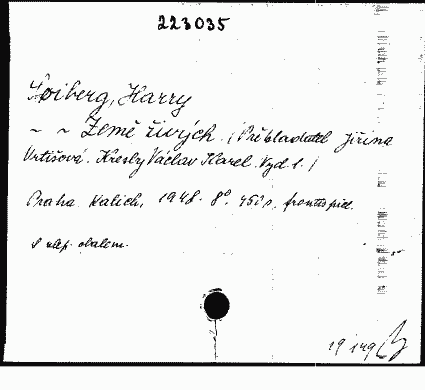 223035
Soiberg, Harry
~ ~ Země živých. (Překladatel Jiřina
Vrtišová. Kresby Václav Karel. Vyd. 1.)
Praha. Kalich, 1948. 8°. 450 s. frontispid.
S nlep. obalem.
19